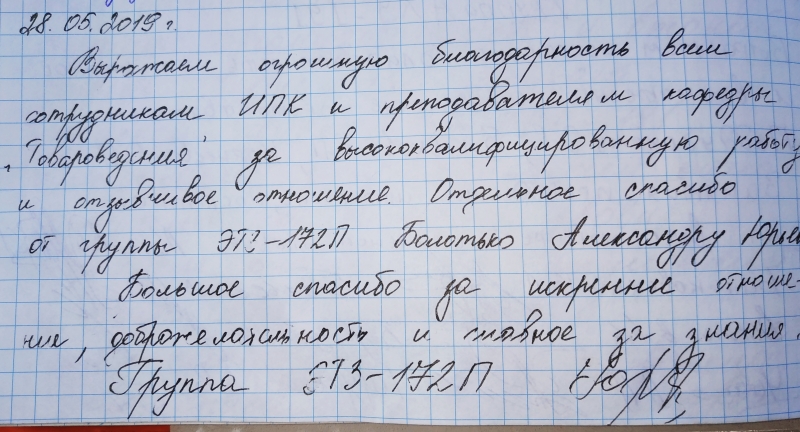 28.05.2019 г.
Выражаем огромную благодарность всем
сотрудникам ИПК и преподавателям кафедры
"Товароведения" за высококвалифицированную работу
и отзывчивое отношение. Отдельное спасибо
от группы ЭТЗ-172П Болотько Александру Юрьев
Большое спасибо за искреннее отноше-
ние, доброжелательность и главное за знания.
Группа ЭТЗ-172П